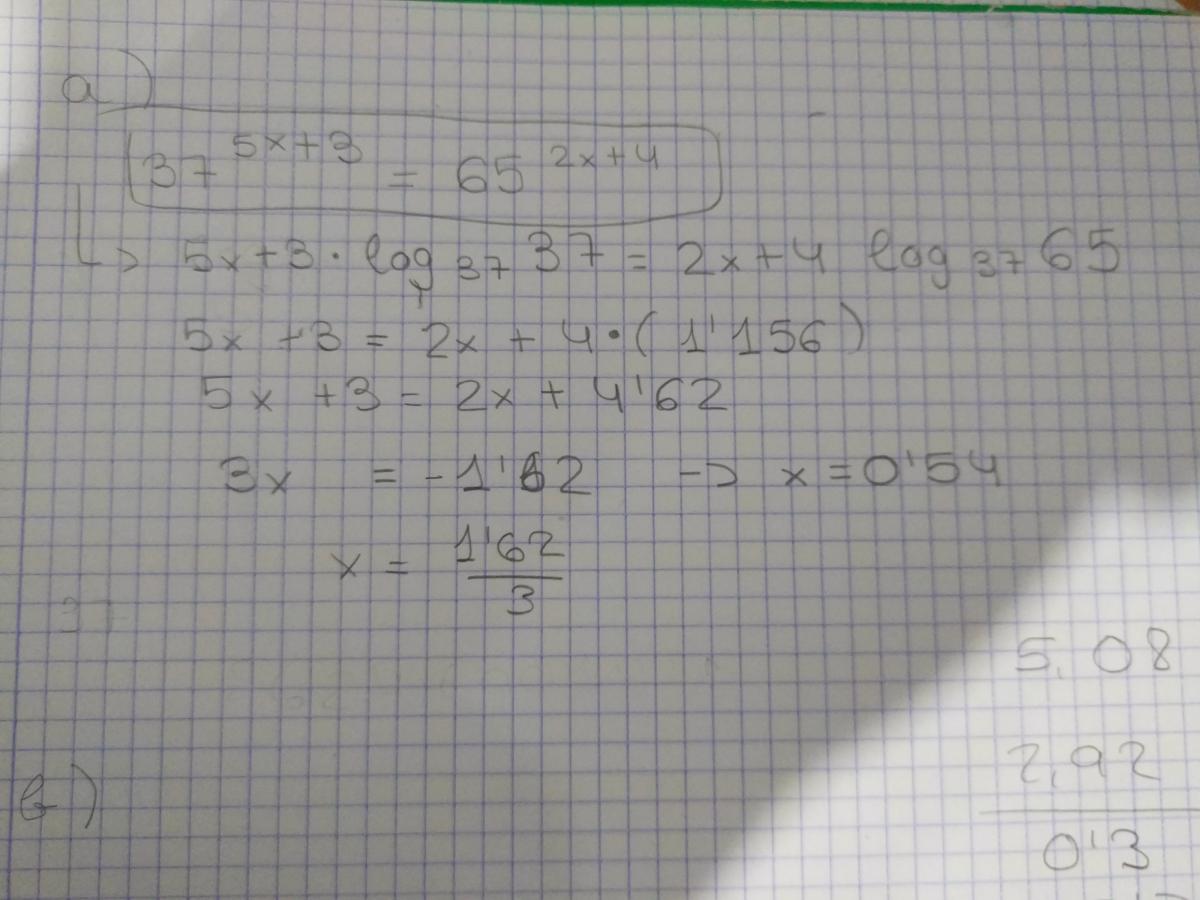 a)
37^(5x+3) = 65^(2x+4)
↳ 5x+3 · log₃₇ 37 = 2x+4 log₃₇ 65
5x +3 = 2x + 4·(1'156)
5x +3 = 2x + 4'62
3x = -1'62 -> x = 0'54
x = 1'62/3
37
5,08
2,92
0'3
b)